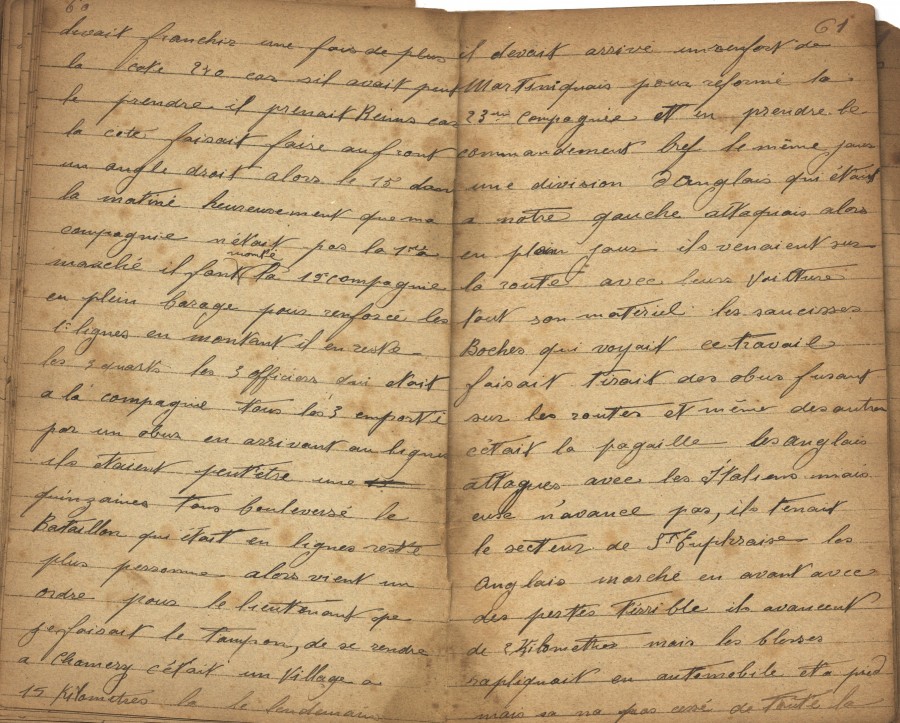 60
devait franchir une fois de plus
la cote 240 car sil avait peut
le prendre il prenait Reims car
la cote faisait faire au front
un angle droit alors le 15 dans
la matiné heureusement que ma
compagnie nétait pas la 1ere a
marché il font monté la 19 compagnie
en plein barage pour renforcé les
1e lignes en montant il en reste
les 3 quarts les 3 officiers qui était
a la compagnie tous les 3 emporté
par un obus en arrivant au lignes
ils étaient peut être une
quinzaines tous bouleversé le
Bataillon qui était en lignes reste
plus personne alors vient un
ordre pour le lieutenant que
je faisait le tampon, de se rendre
a Chamery cétait un village a
15 Kilometres la le lendemain
61
il devait arrivé un renfort de
Martiniquais pour reformé la
23me compagnie et en prendre le
commandement bref le même jour
une division d'anglais qui était
a notre gauche attaquais alors
en plain jour ils venaient sur
la route avec leurs voitture
tout son matériel les saucisses
Boches qui voyait ce travail
faisait tirait des obus fusant
sur les routes et même des autres
cétait la pagaille les anglais
attaques avec les Italiens mais
eux n'avance pas, ils tenait
le secteur de St Euphraise les
anglais marché en avant avec
des pertes térrible ils avancent
de 2 Kilometres mais les blesses
rapliquait en automobile et a pied
mais sa na pas cesé de toute la